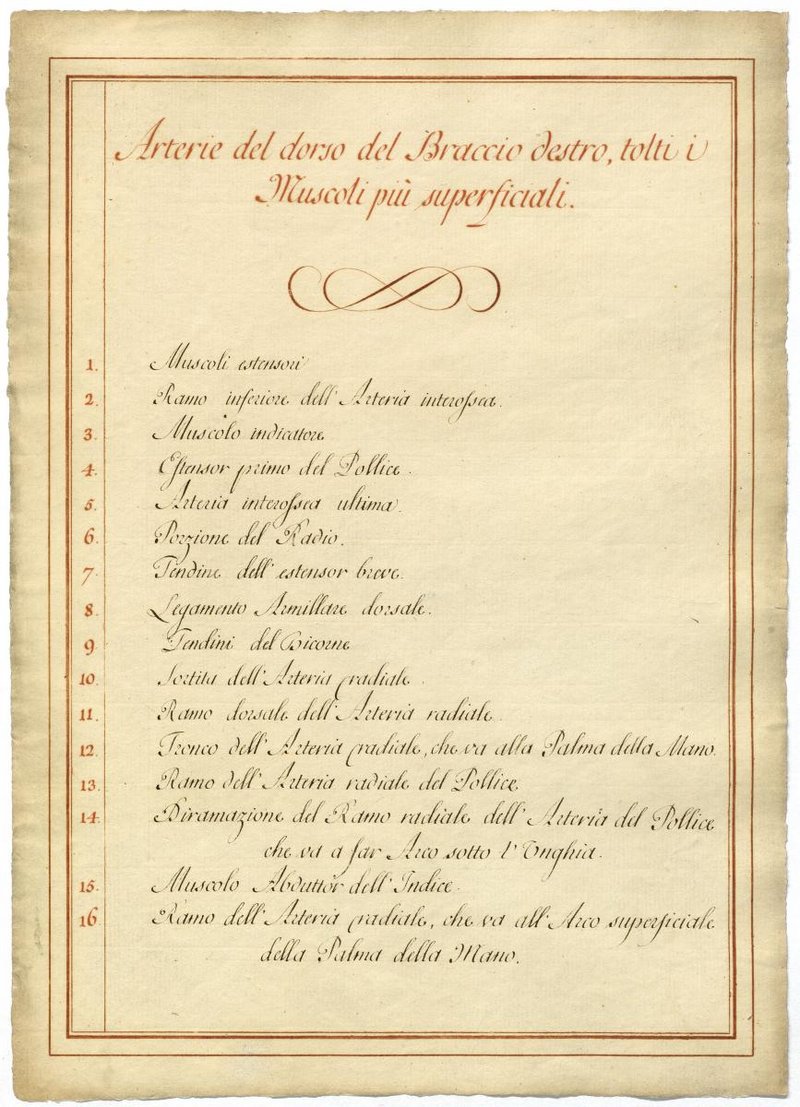 Arterie del dorso del Braccio destro, tolti i
Muscoli più superficiali.
1. Muscoli estensori
2. Ramo inferiore dell' Arteria interossea.
3. Muscolo indicatore
4. Estensor primo del Pollice.
5. Arteria interossea ultima.
6. Porzione del Radio.
7. Tendine dell' estensor breve.
8. Legamento Armillare dorsale.
9. Tendini del Bicorne
10. Sortita dell' Arteria radiale.
11. Ramo dorsale dell' Arteria radiale.
12. Tronco dell' Arteria radiale, che va alla Palma della Mano.
13. Ramo dell' Arteria radiale del Pollice.
14. Diramazione del Ramo radiale dell' Arteria del Pollice
che va a far Arco sotto l' Unghia.
15. Muscolo Abduttor dell' Indice.
16. Ramo dell' Arteria radiale, che va all' Arco superficiale
della Palma della Mano.